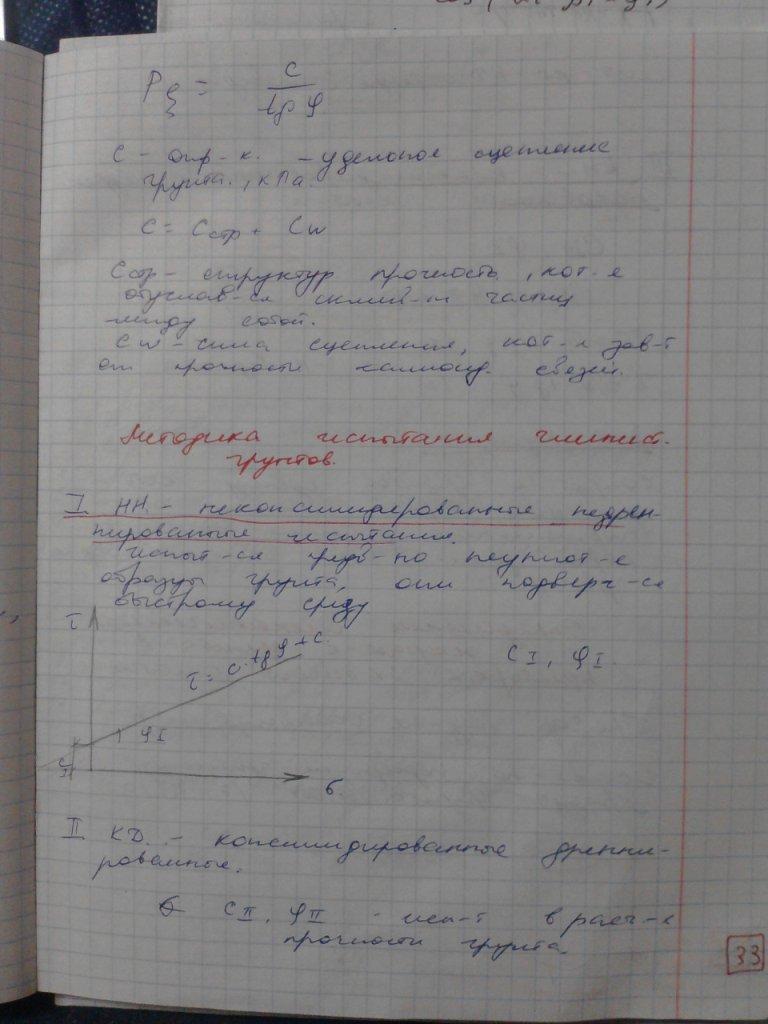 Pε = c / tg φ
C - опр-к. - удельное сцепление
грунта, кПа.
C = Cстр + Cw
Cстр - структур прочность, кот-я
обуслав-ся склеив-м частиц
между собой.
Cw - сила сцепления, кот-я зав-т
от прочности коллоид. связей.
Методика испытания глинист.
грунтов.
I НН. - неконсолидированные недрен-
нированные испытания.
испыт-ся неуплот-е
образцы грунта, они подверг-ся
быстрому срезу
τ
τ = σ·tg φ + c
CI, φI.
φI
CI
σ
II КД. - консолидированные дренни-
рованные.
CII, φII - исп-т в расч-х
прочности грунта
33